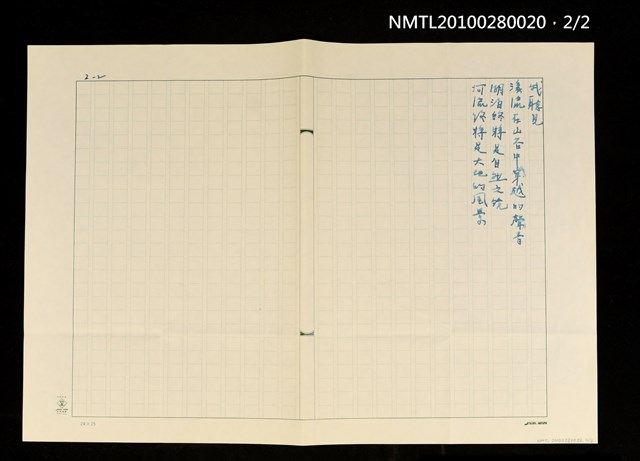 NMTL20100280020，2/2
2-2
我聽見
溪流在山谷中穿越的聲音
湖泊終將是自然之鏡
河流終將是大地的風景